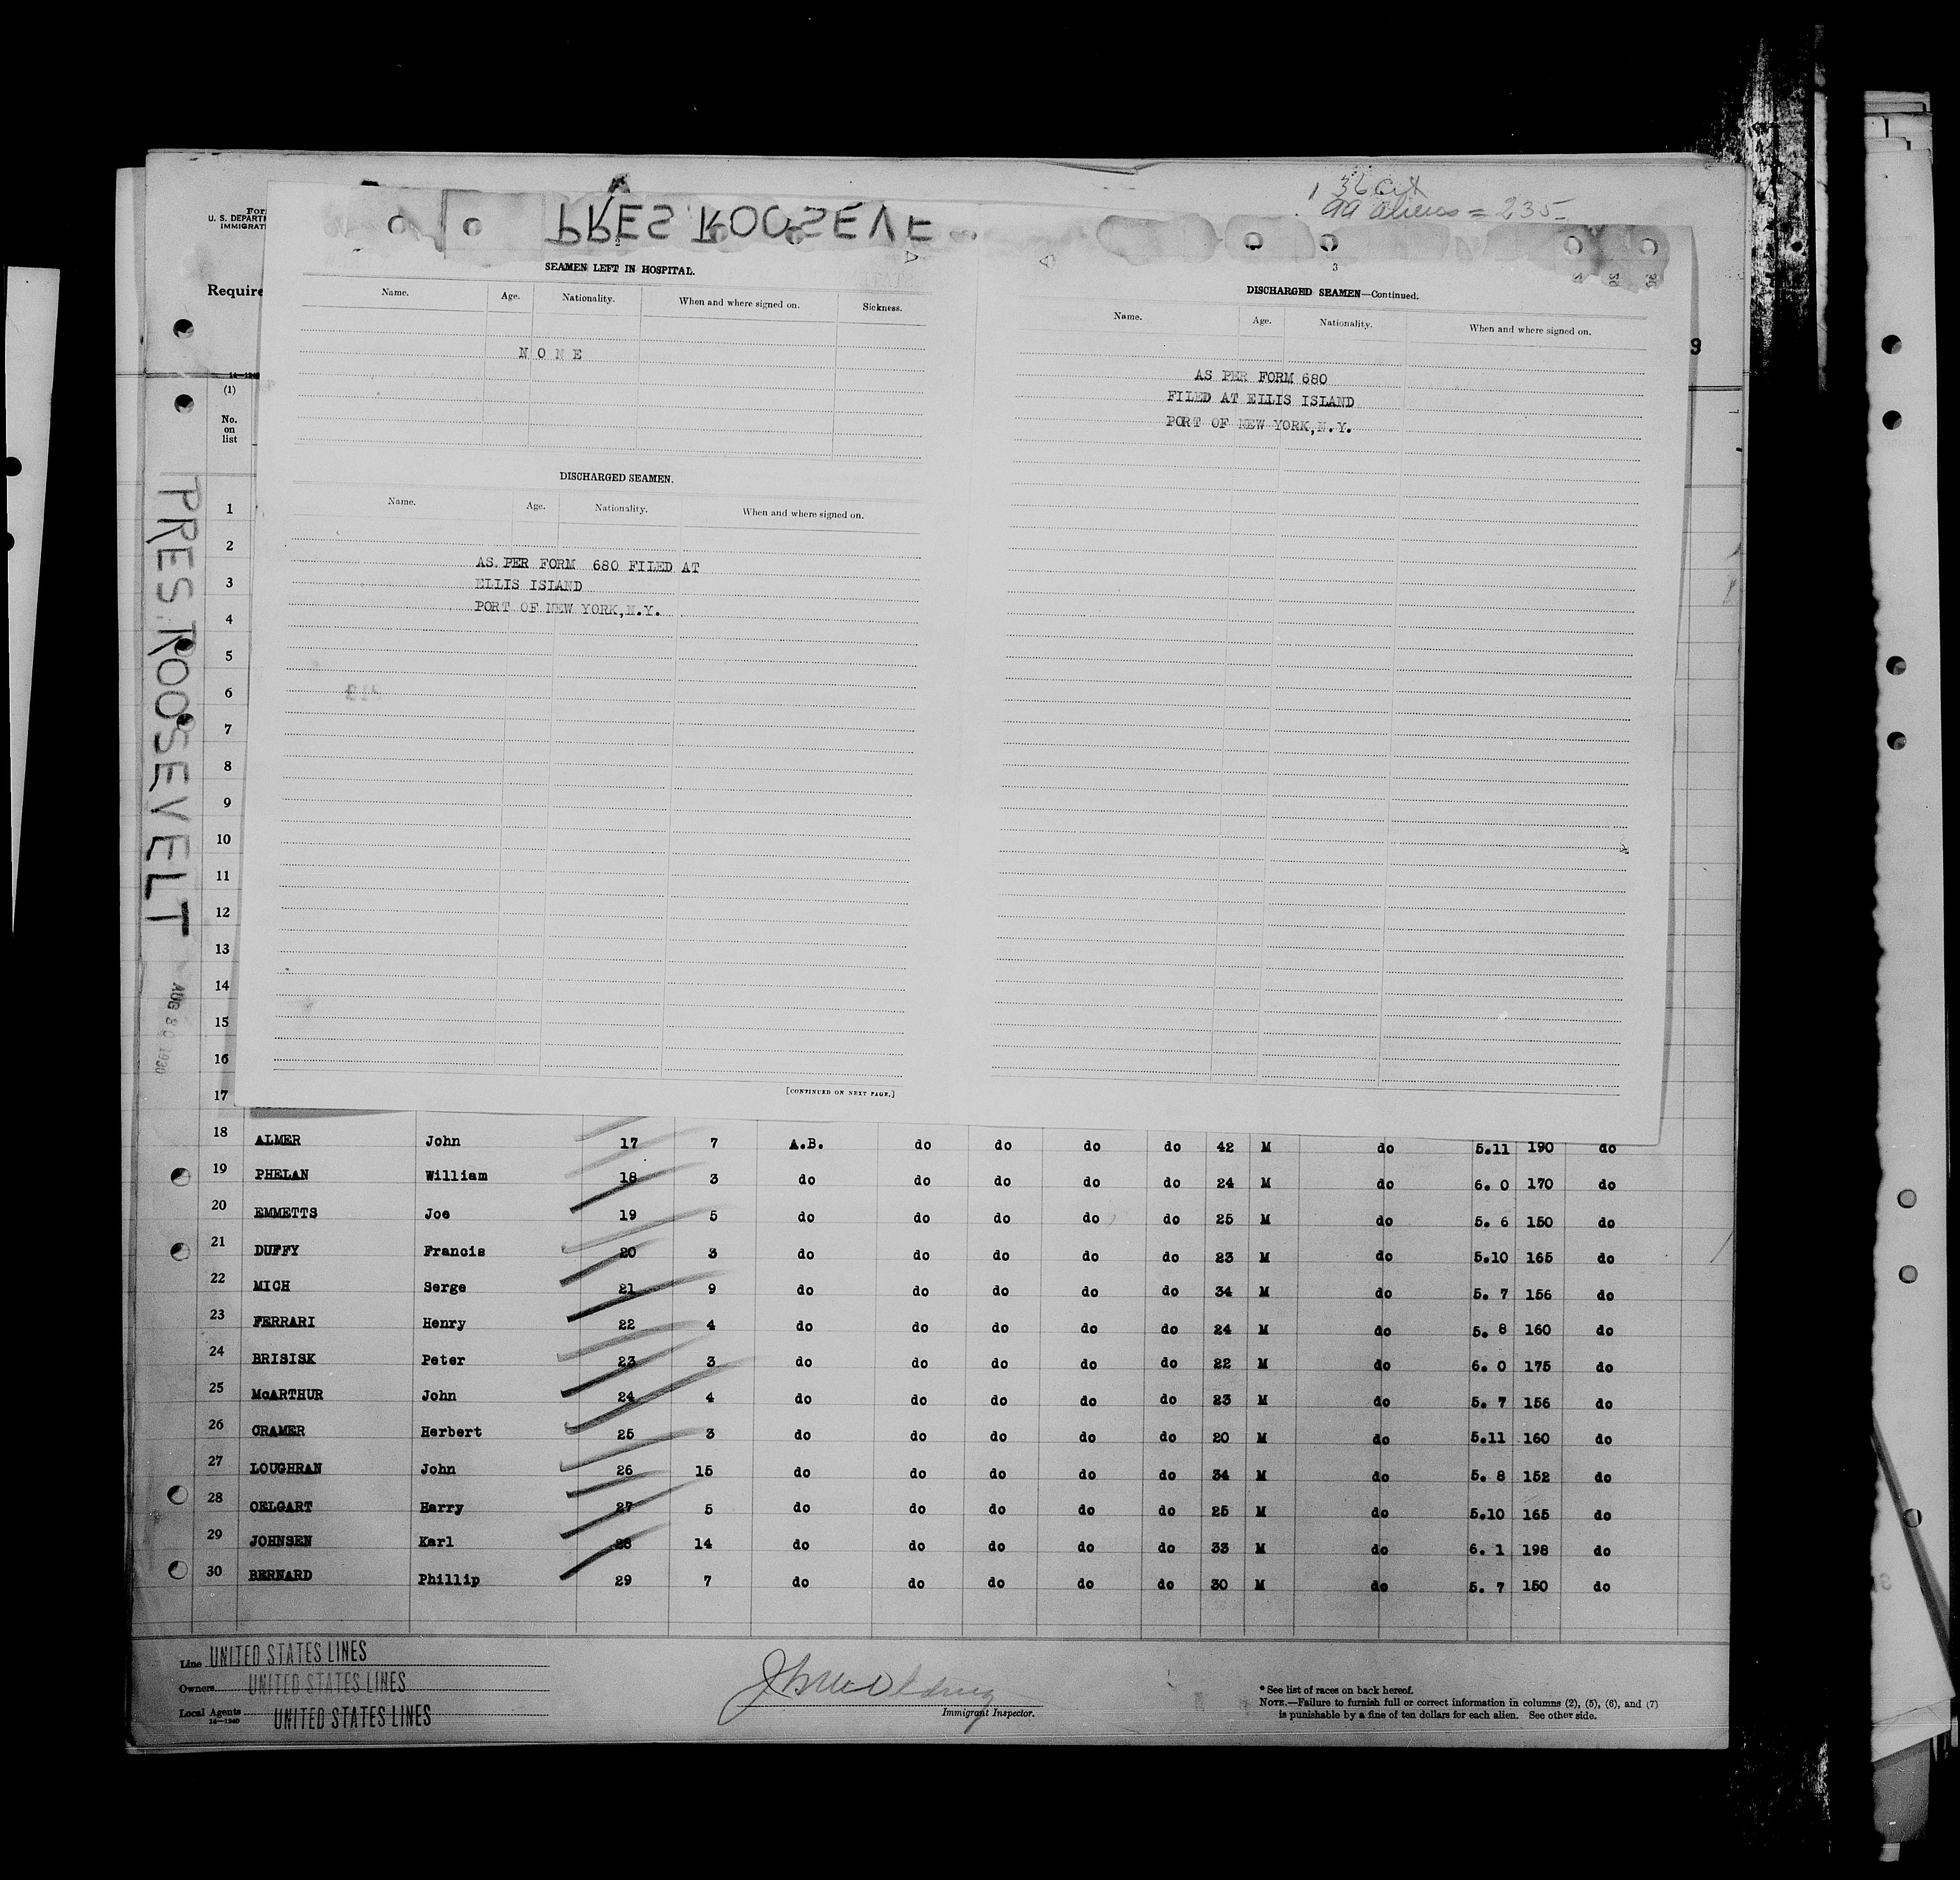 136 Cit
99 aliens = 235
For
U. S. DEPART
IMMIGRAT
Require
9
(1)
No.
on
list
PRES. ROOSEVELT
AUG 30 1930
PRES. ROOSEVE
2
SEAMEN LEFT IN HOSPITAL.
Name. Age. Nationality. When and where signed on. Sickness.
NONE
DISCHARGED SEAMEN.
Name. Age. Nationality. When and where signed on.
AS PER FORM 680 FILED AT
ELLIS ISLAND
PORT OF NEW YORK,N.Y.
[CONTINUED ON NEXT PAGE.]
3
DISCHARGED SEAMEN—Continued.
Name. Age. Nationality. When and where signed on.
AS PER FORM 680
FILED AT ELLIS ISLAND
PORT OF NEW YORK,N.Y.
1
2
3
4
5
6
7
8
9
10
11
12
13
14
15
16
17
18 ALMER John 17 7 A.B. do do do do 42 M do 5.11 190 do
19 PHELAN William 18 3 do do do do do 24 M do 6. 0 170 do
20 EMMETTS Joe 19 5 do do do do do 25 M do 5. 6 150 do
21 DUFFY Francis 20 3 do do do do do 23 M do 5.10 165 do
22 MICH Serge 21 9 do do do do do 34 M do 5. 7 156 do
23 FERRARI Henry 22 4 do do do do do 24 M do 5. 8 160 do
24 BRISISK Peter 23 3 do do do do do 22 M do 6. 0 175 do
25 McARTHUR John 24 4 do do do do do 23 M do 5. 7 156 do
26 CRAMER Herbert 25 3 do do do do do 20 M do 5.11 160 do
27 LOUGHRAN John 26 15 do do do do do 34 M do 5. 8 152 do
28 OELGART Harry 27 5 do do do do do 25 M do 5.10 165 do
29 JOHNSEN Karl 28 14 do do do do do 33 M do 6. 1 198 do
30 BERNARD Phillip 29 7 do do do do do 30 M do 5. 7 150 do
Line UNITED STATES LINES
Owners UNITED STATES LINES
Local Agents UNITED STATES LINES
14—1240
Immigrant Inspector.
* See list of races on back hereof.
NOTE.—Failure to furnish full or correct information in columns (2), (5), (6), and (7)
is punishable by a fine of ten dollars for each alien. See other side.